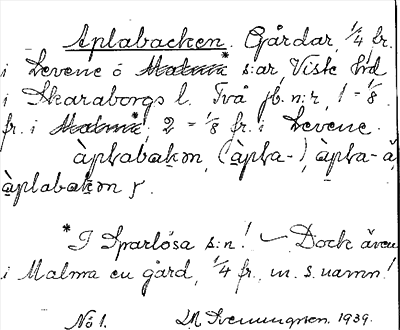 Aplabacken. Gårdar, 1/4 fr.
i Levene o Malma* s:ar, Viste hd
i Skaraborgs l. Två jb. n:r, 1 - 1/8
fr. i Malma*, 2 - 1/8 fr. i Levene.
àplabakən, (àpla-), àpla-
àplabakən
*I Sparlösa s:n! – Dock även
i Malma en gård, 1/4 fr., m. s. namn!
No 1. 1939.